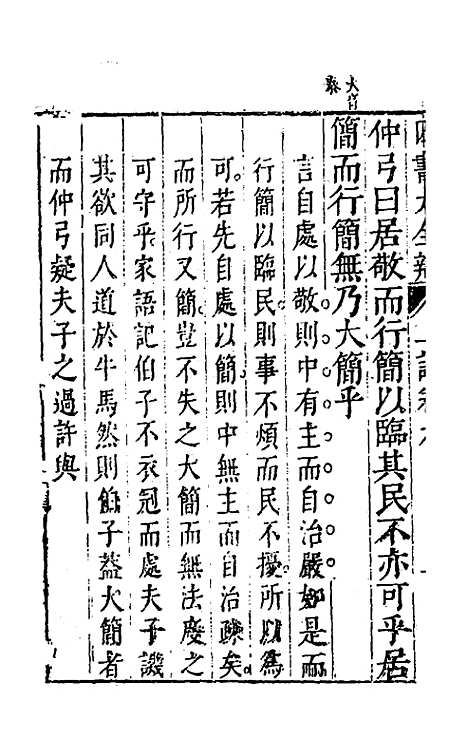 大音
泰
四書大全辯
仲弓曰居敬而行簡以臨其民不亦可乎居
簡而行簡無乃大簡乎
言自處以敬則中有主而自治嚴如是而
行簡以臨民則事不煩而民不擾所以為
可若先自處以簡則中無主而自治疎矣
而所行又簡豈不失之大簡而無法度之
可守乎家語記伯子不衣冠而處夫子譏
其欲同人道於牛馬然則伯子蓋大簡者
而仲弓疑夫子之過許與